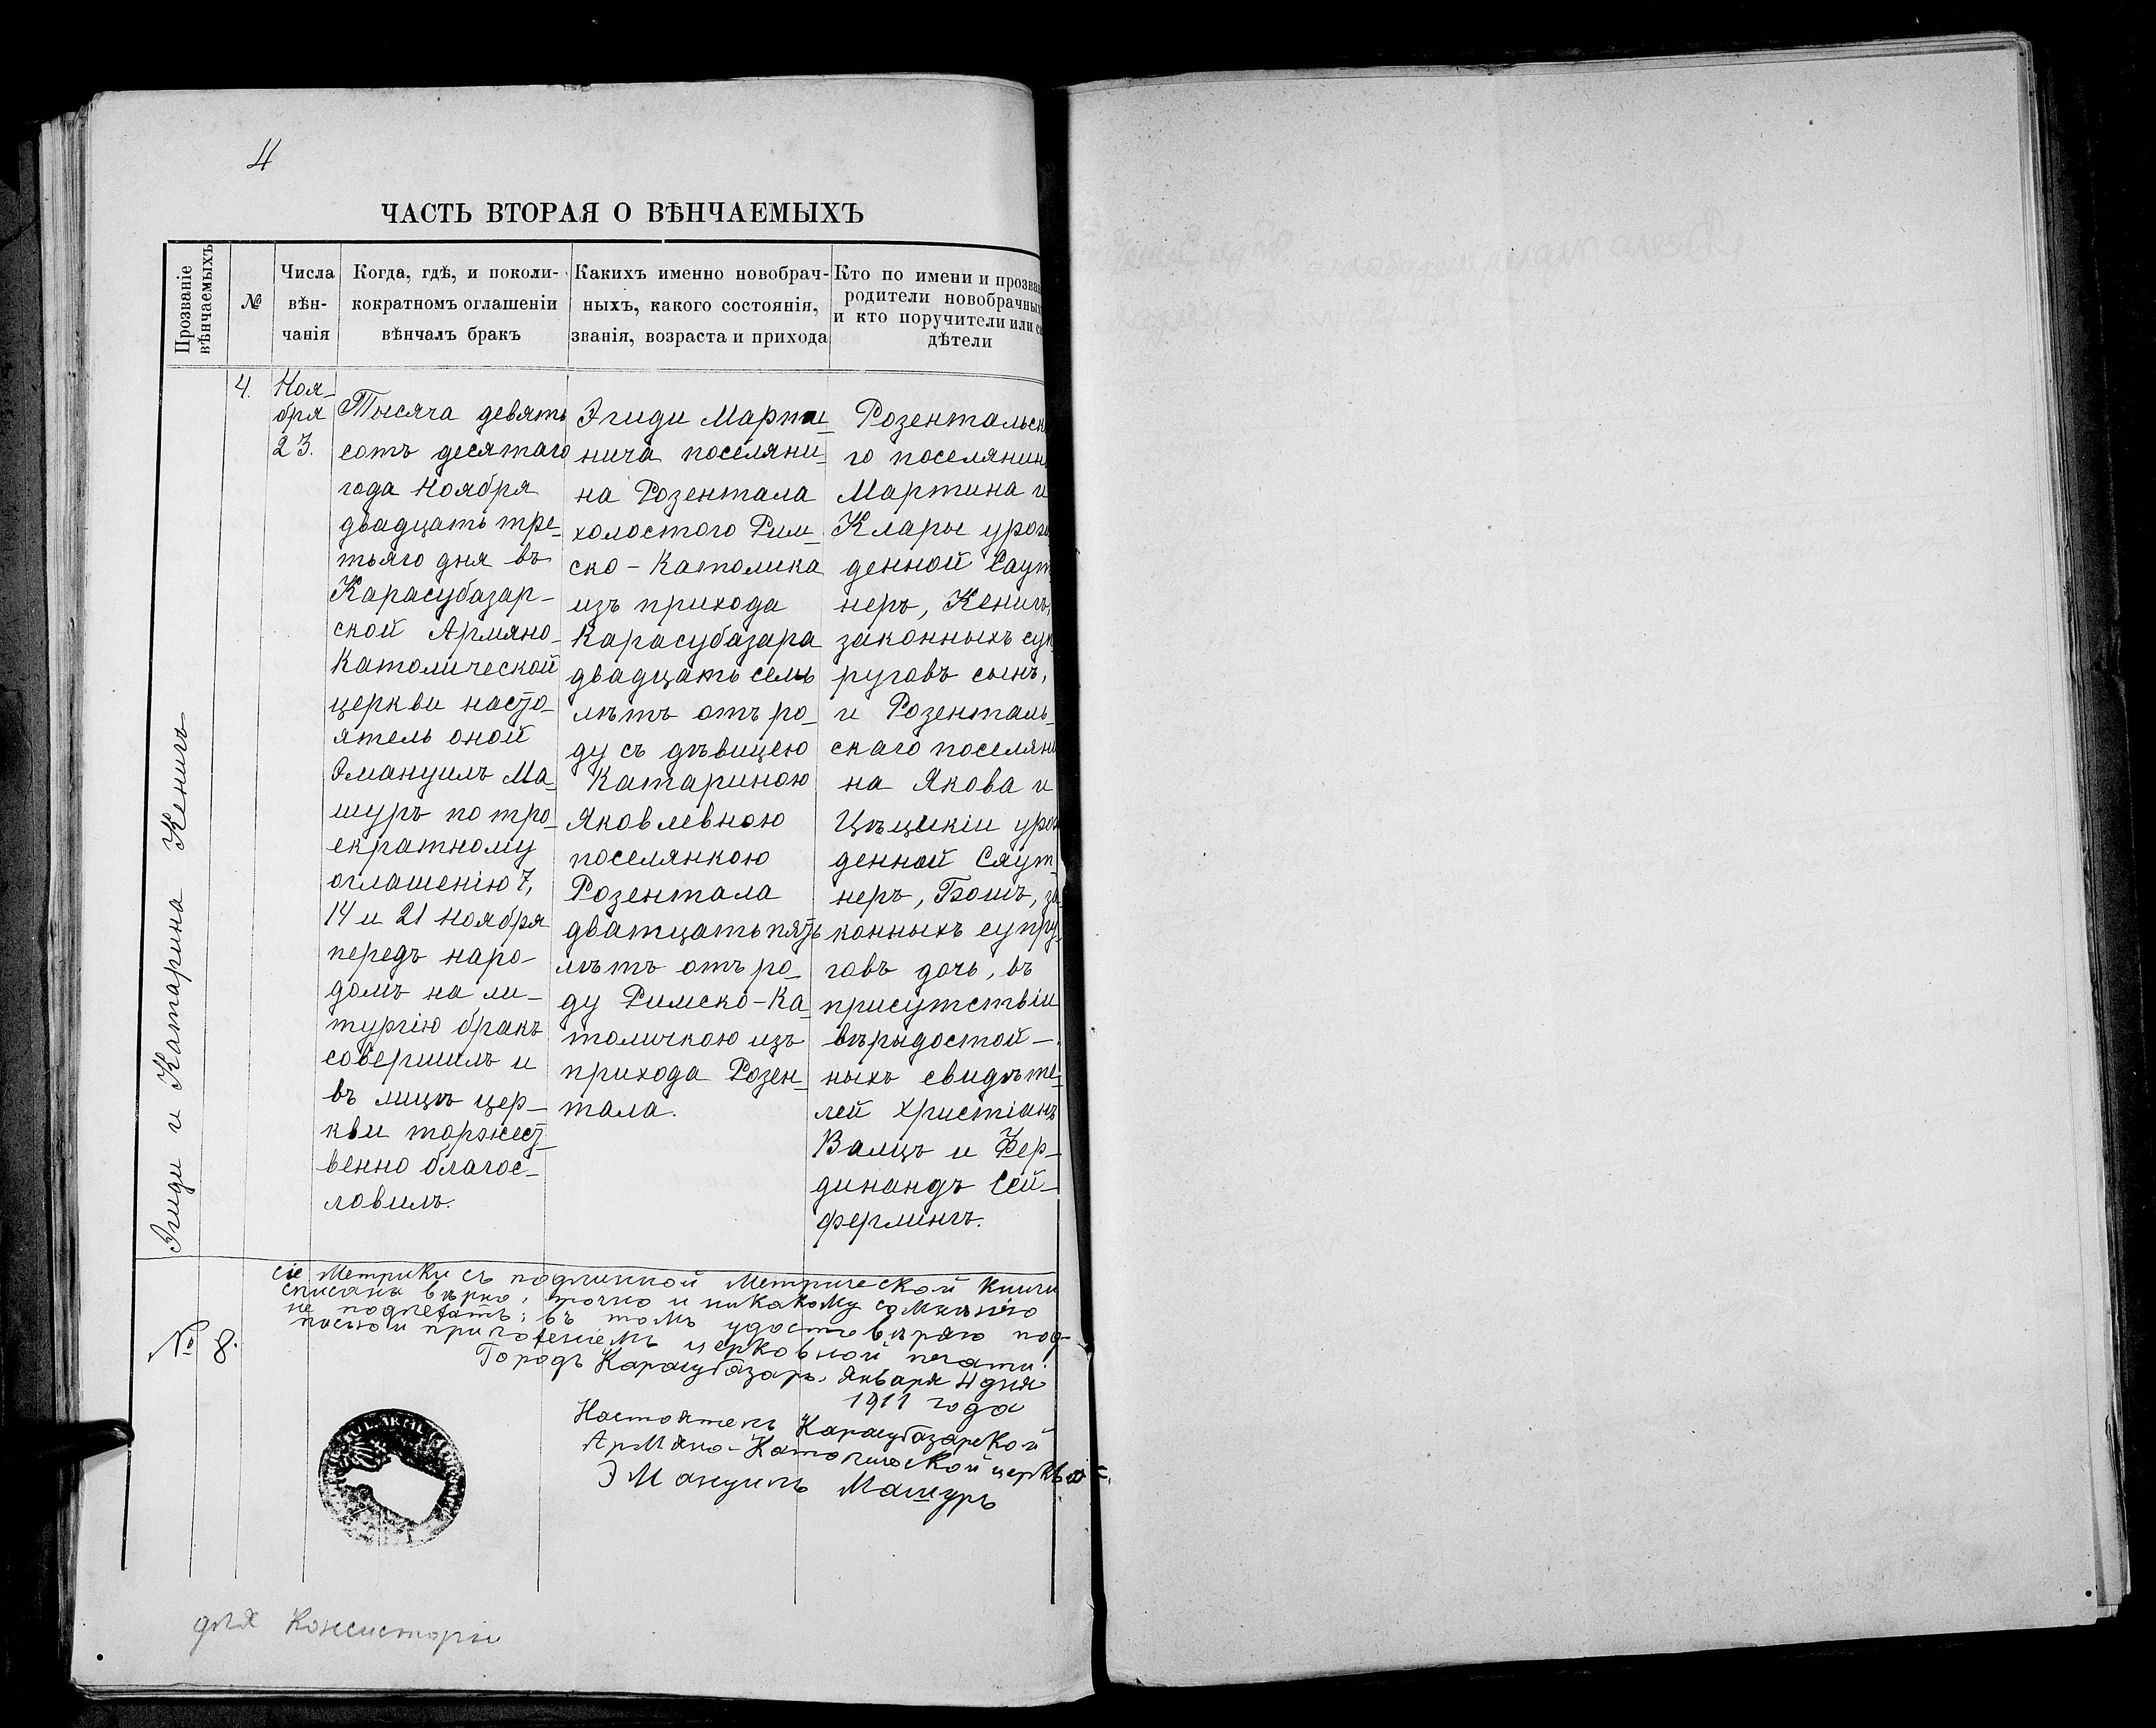 4
ЧАСТЬ ВТОРАЯ О ВѢНЧАЕМЫХЪ
Прозваніе
вѣнчаемыхъ
№
Числа
вѣн-
чанія
Когда, гдѣ, и поколи-
кократномъ оглашеніи
вѣнчалъ бракъ
Какихъ именно новобрач-
ныхъ, какого состоянія,
званія, возраста и прихода
Кто по имени и прозва
родители новобрачных
и кто поручители или с
дѣтели
Эгиди и Катарина Кенигъ
4.
Ноя-
бря
23.
Тысяча девять
сотъ десятаго
года Ноября
двадцать тре-
тьяго дня въ
Карасубазар-
ской Армяно-
Католической
церкви насто-
ятель оной
Эмануилъ Ма-
шуръ по тро-
екратному
оглашенію 7,
14 и 21 Ноября
передъ наро-
домъ на ли-
тургію бракъ
совершилъ и
въ лицѣ цер-
кви торжест-
венно благос-
ловилъ.
Эгиди Марти-
нича поселяни-
на Розентала
холостого Рим-
ско-Католика
изъ прихода
Карасубазара
двадцать семь
лѣтъ отъ ро-
ду съ дѣвицею
Катариною
Яковлевною
поселянкою
Розентала
дватцать пять
лѣтъ отъ ро-
ду Римско-Ка-
толичкою изъ
прихода Розен-
тала.
Розентальск
го поселянин
Мартина и
Клары урож
денной Саут
неръ, Кенигъ,
законныхъ суп
руговъ сынъ,
и Розенталь-
скаго поселяни
на Якова и
Цѣцикіи урож
денной Саут-
неръ, Бошъ, за
конныхъ супру-
говъ дочь, въ
присутствіи
вѣрыдостой-
ныхъ свидѣте-
лей Христіанъ
Валцъ и Фер-
динандъ Сей-
ферлингъ.
№ 8.
Сіе Метрики съ подлинной Метрической Книги
списана вѣрно, точно и никакому сомнѣнію
не подлежатъ; въ томъ удостовѣряю под-
писью и приложеніемъ церковной печати.
Городъ Карасубазаръ. Января 4 дня
1911 года
Настоятель Карасубазарской
Армяно-Католической церкви
Эмануилъ Машуръ
для Консисторіи